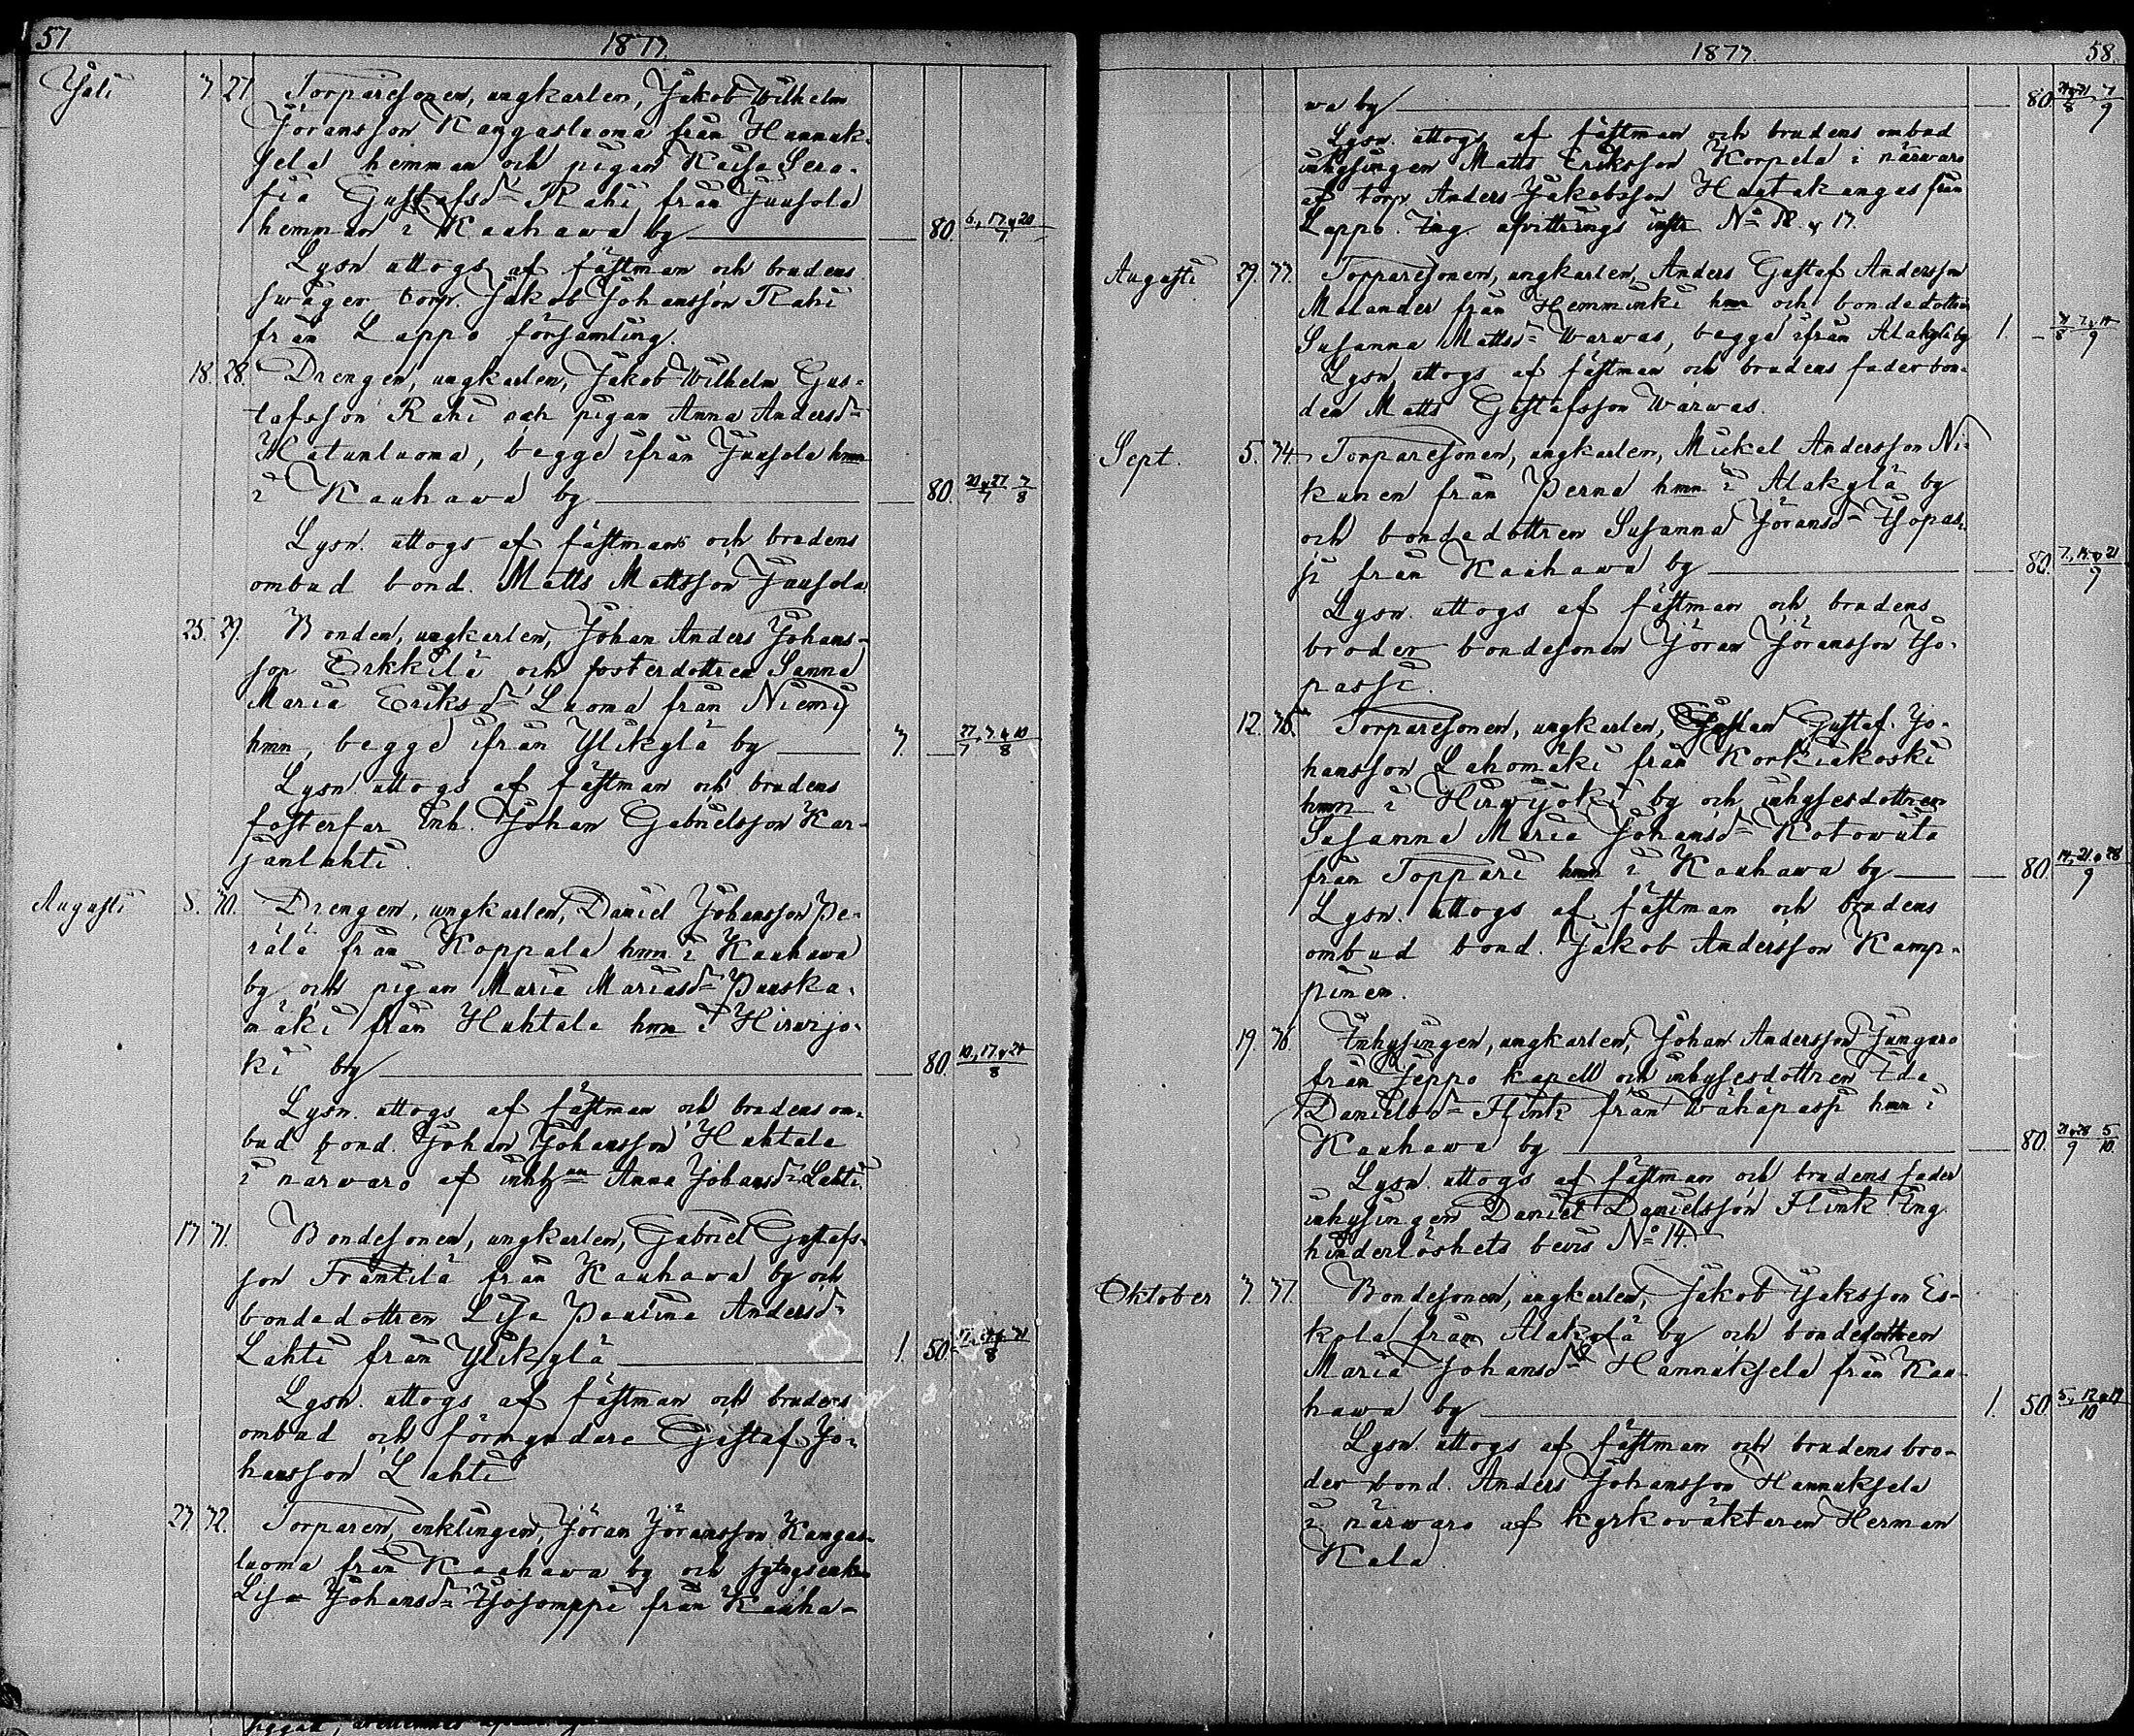 57.
1877.
Juli 3. 27. Torparesonen, ungkarlen, Jakob Wilhelm
Jöransson Kangasluoma från Hannuk-
sela hemman och pigan Kaisa Sera-
fia Gustafsd= Rahi från Juusola
hemman i Kauhawa by — 80. 6, 13 & 20/7
Lysn. uttogs af fästman och brudens
swåger torp. Jakob Johansson Rahi
från Lappo församling.
18. 28. Drengen, ungkarlen, Jakob Wilhelm Gus-
tafsson Rahi och pigan Anna Andersd=
Hatunluoma, begge ifrån Juusola hmn
i Kauhawa by — 80. 20 & 27/7 3/8
Lysn. uttogs af fästman och brudens
ombud bond. Matts Mattsson Juusola.
25. 29. Bonden, ungkarlen, Johan Anders Johans-
son Erkkilä och fosterdottren Sanna
Maria Eriksd= Luoma från Niemi
hmn, begge ifrån Ylikylä by — 3. — 27/7, 3 & 10/8
Lysn. uttogs af fästman och brudens
fosterfar Inh. Johan Gabrielsson Kar-
janlahti.
Augusti 8. 30. Drengen, ungkarlen, Daniel Johansson Pe-
rälä från Koppala hmn i Kauhawa
by och pigan Maria Mariasd= Puuska-
mäki från Huhtala hmn i Hirwijo-
ki by — 80. 10, 17 & 24/8
Lysn. uttogs af fästman och brudens om-
bud bond. Johan Johansson Huhtala
i närwaro af Anna Johansd= Lahti.
17. 31. Bondesonen, ungkarlen, Gabriel Gustafs-
son Franttilä från Kauhawa by och
bondedottren Lisa Paulina Andersd=
Lahti från Ylikylä — 1. 50.
Lysn. uttogs af fästman och brudens
ombud och förmyndare Gustaf Jo-
hansson Lahti
23. 32. Torparen, enklingen, Jöran Jöransson Kangas-
luoma från Kauhawa by och
Lisa Johansd= Isosomppi från Kauha-
1877.
58.
wa by — 80. 24 & 31/8 7/9
Lysn. uttogs af fästman och brudens ombud
inhysingen Matts Eriksson Korpela i närwaro
af torp. Anders Jakobsson Hautakangas från
Lappo. Ing. afvittrings instr. No 12 & 13.
Augusti 29. 33. Torparesonen, ungkarlen, Anders Gustaf Andersson
Malander från Hemminki hmn och bondedottren
Susanna Mattsd= Warwas, begge ifrån Alakylä by 1. — 31/8 7 & 14/9
Lysn. uttogs af fästman och brudens fader bon-
den Matts Gustafsson Warwas.
Sept. 5. 34. Torparesonen, ungkarlen, Mickel Andersson Ni-
kunen från Perna hmn i Alakylä by
och bondedottren Susanna Jöransd= Isopas-
si från Kauhawa by — 80. 7, 14 & 21/9
Lysn. uttogs af fästman och brudens
broder bondesonen Jöran Jöransson Iso-
passi.
12. 35. Torparesonen, ungkarlen, Gustaf Jo-
hansson Lahomäki från Korkiakoski
hmn i Hirwijoki by och inhysesdottren
Susanna Maria Johansd= Kotowuta
från Toppari hmn i Kauhawa by — 80. 14, 21 & 28/9
Lysn. uttogs af fästman och brudens
ombud bond. Jakob Andersson Kamp-
pinen.
19. 36. Inhysingen, ungkarlen, Johan Andersson Jungaro
från Jeppo kapell och inhysesdottren Ida
Danielsd= Flink från Wähäpassi hmn i
Kauhawa by — 80. 21 & 28/9 5/10.
Lysn. uttogs af fästman och brudens fader
inhysingen Daniel Danielsson Flink Ing.
hinderlöshets bevis No 14.
Oktober 3. 37. Bondesonen, ungkarlen, Jakob Jaksson Es-
kola från Alakylä by och bondedottren
Maria Johansd= Hannuksela från Kau-
hawa by — 1. 50. 5, 12 & 19/10
Lysn. uttogs af fästman och brudens bro-
der bond. Anders Johansson Hannuksela
i närwaro af kyrkowäktaren Herman
Kala